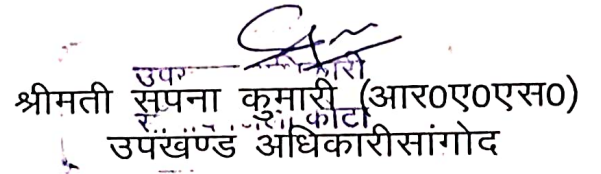 श्रीमती सपना कुमारी (आर०ए०एस०)
उपखण्ड अधिकारीसांगोद